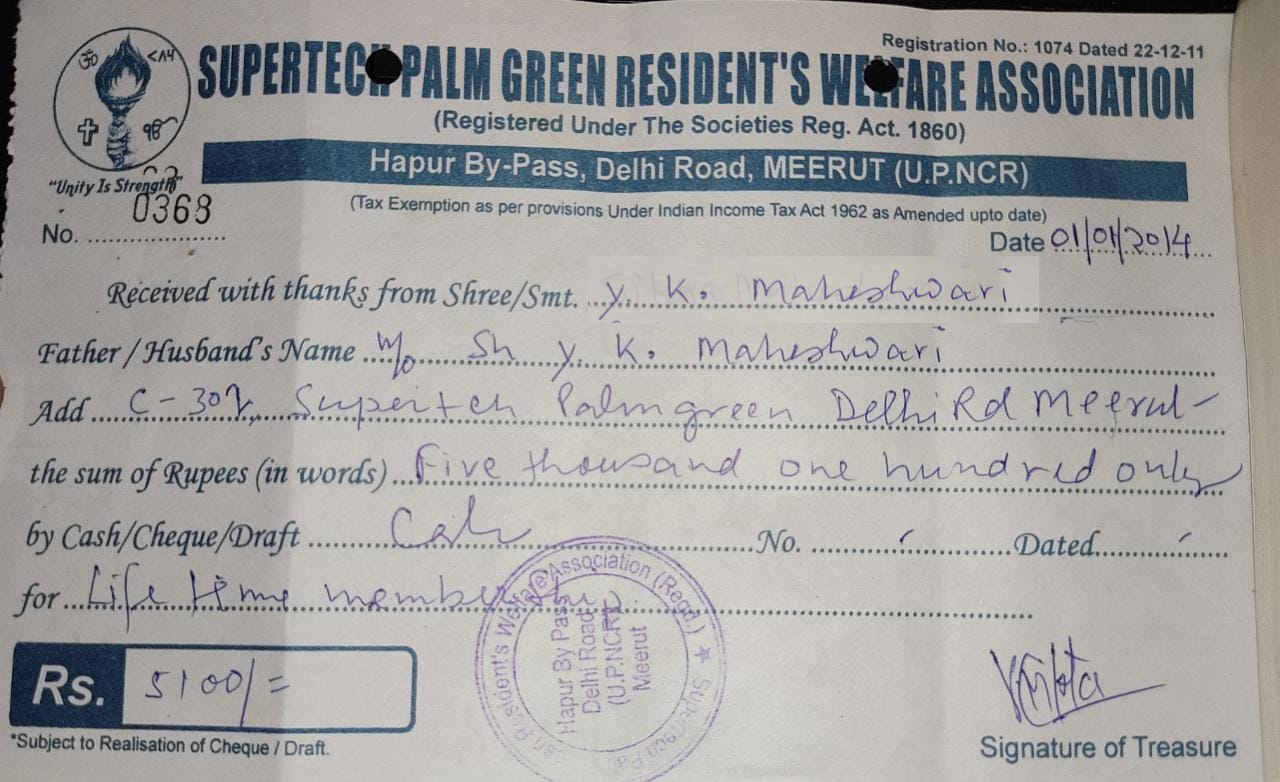 Registration No.: 1074 Dated 22-12-11
SUPERTECH PALM GREEN RESIDENT'S WELFARE ASSOCIATION
(Registered Under The Societies Reg. Act. 1860)
Hapur By-Pass, Delhi Road, MEERUT (U.P.NCR)
"Unity Is Strength"
(Tax Exemption as per provisions Under Indian Income Tax Act 1962 as Amended upto date)
No. 0368
Date 01/01/2014
Received with thanks from Shree/Smt. Y. K. Maheshwari
Father / Husband's Name W/o Sh Y. K. Maheshwari
Add C-302, Supertech Palmgreen Delhi Rd Meerut
the sum of Rupees (in words) Five thousand one hundred only
by Cash/Cheque/Draft Cash No. Dated
for Life time membership
Rs. 5100/=
*Subject to Realisation of Cheque / Draft.
Resident's Welfare Association (Regd.) ★ Supertech
Hapur By Pass
Delhi Road
(U.P.NCR)
Meerut
Signature of Treasure